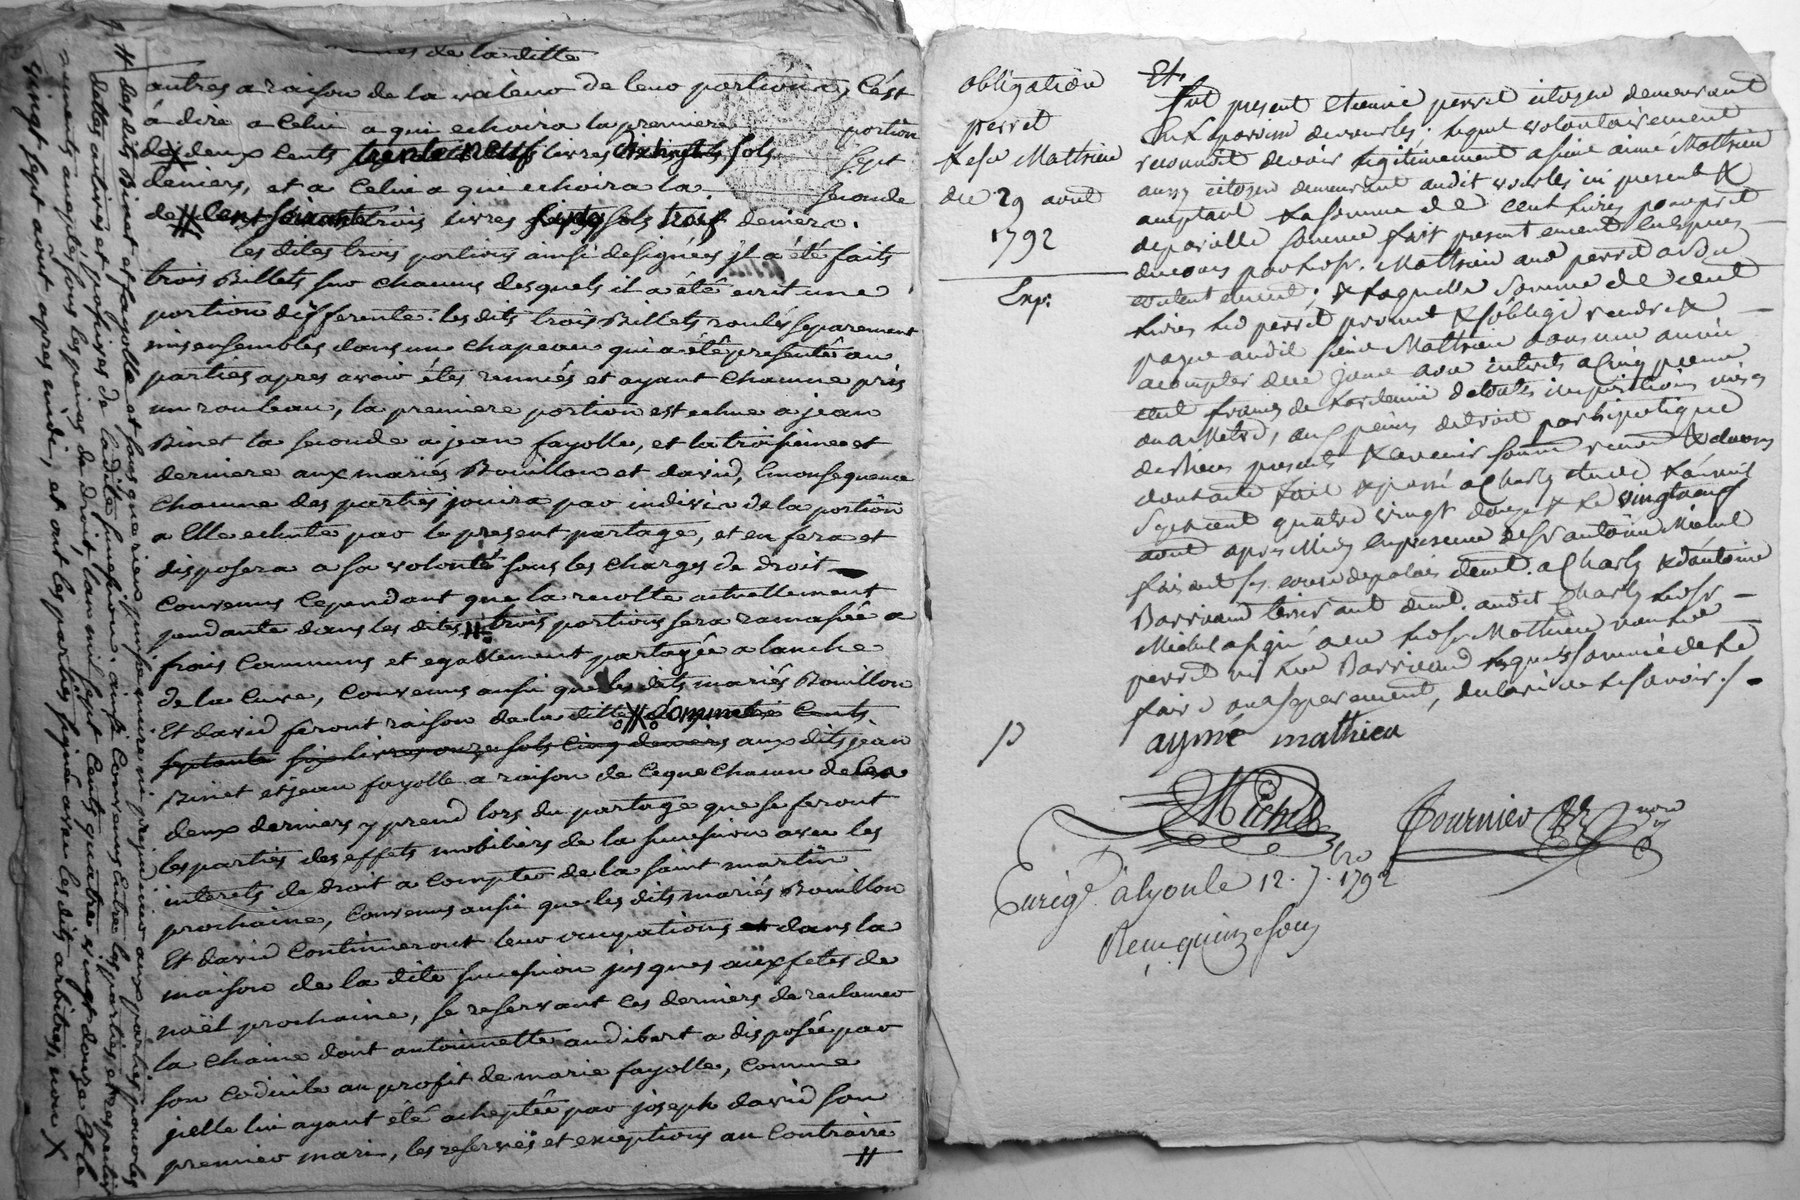 de la ditte
autres a raison de la valeur de leur portions, C'est
á dire a Celui a qui echoira la premiere portion
de deux Cents trente neuf livres dixhuit sols sept
deniers, et a Celui a qui echoira la seconde
de # Cent soixante trois livres sols trois deniers.
les dites trois portions ainsi designées il a été faits
trois Billets sur chacuns desquels il a été ecrit une
portion differente. les dits trois Billets roulés separement
mis ensembles dans un chapeau qui a été presenté au
parties apres avoir étés remués et ayant Chacune pris
un rouleau, la premiere portion est echue a jean
Binet la seconde a jean fayolle, et la troisieme et
derniere aux mariés Bouillon et david, Consequence
Chacune des parties jouira par indivis de la portion
a Elle echute par le present partage, et en fera et
disposera a sa volonté sous les charges de droit
Convenus Cependant que la recolte actuellement
pendante dans les dites # trois portions sera ramasée a
frais Communs et egallement partagée a lanche
de la Cuve, Convenus aussi que les dits mariés Bouillon
Et david feront raison de la ditte # somme Cents
septante six livres onze sols cinq deniers aux dits jean
Binet et jean fayolle a raison de Ceque Chacun de Ces
deux derniers y prend lors du partage que se feront
les parties des effets mobiliers de la succession avec les
interets de droit a Compter de la saint martin
prochaine, Convenus aussi que les dits mariés Bouillon
Et david Continueront leur occupations et dans la
maison de la dite succession jusques aux fetes de
noël prochaine, se reservant Ces derniers de reclamer
la Chaine dont antoinette audibert a disposée par
son Codicile au profit de marie fayolle, Comme
jcelle lui ayant été acheptée par joseph david son
premier mari, les reserves et exceptions au Contraire
#
# des dits Binet et fayolle et sans que rien puisse nuire ni prejudicier aux parties pour les
dettes actives et passives de la dite succession. ainsi Convenus entre les parties, et respective
acceptés sous les peines de droit, lan mil sept Cents quatre vingt douze et le
vingt sept aôut apres midi, et ont les parties signé avec les dits arbitres, non X
obligation
perret
Mathieu
du 29 aout
1792
Exp:
fut present Etienne perret citoyen demeurant
En la paroisse de vourles. lequel volontairement
reconnoit devoir legitimement a sieur aimé Mathieu
aussy citoyen demeurant audit vourles ici present &
acceptant la somme de cent livres pour pret
de pareille somme fait presentement En Especes
de cours par led. sr. Mathieu aud perret
contentement; laquelle somme de cent
livres led perret promet & s'oblige rendre &
payer audit sieur Mathieu dans une année
a compter de ce jour avec interets a cinq pour
cent francs de retenue de toutes impositions mises
ou a Mettre, aux peines de droit par hipotèque
de ses biens presents & avenir
dont acte fait & passé a Charly Etude l'an mil
sept cent quatre vingt douze & le vingt neuf
aout apres Midi En presence de sr antoine Michel
a Charly & d'antoine
Barriand demt. audit Charly led sr
Michel a signé avec led sr Mathieu non led
perret ni led Barriand lequels sommé de le
faire ont separement, declaré ne le savoir.
aymé mathieu
Michel
fournier
Enreg. a lyon le 12. 7bre 1792
Recu quinze sous